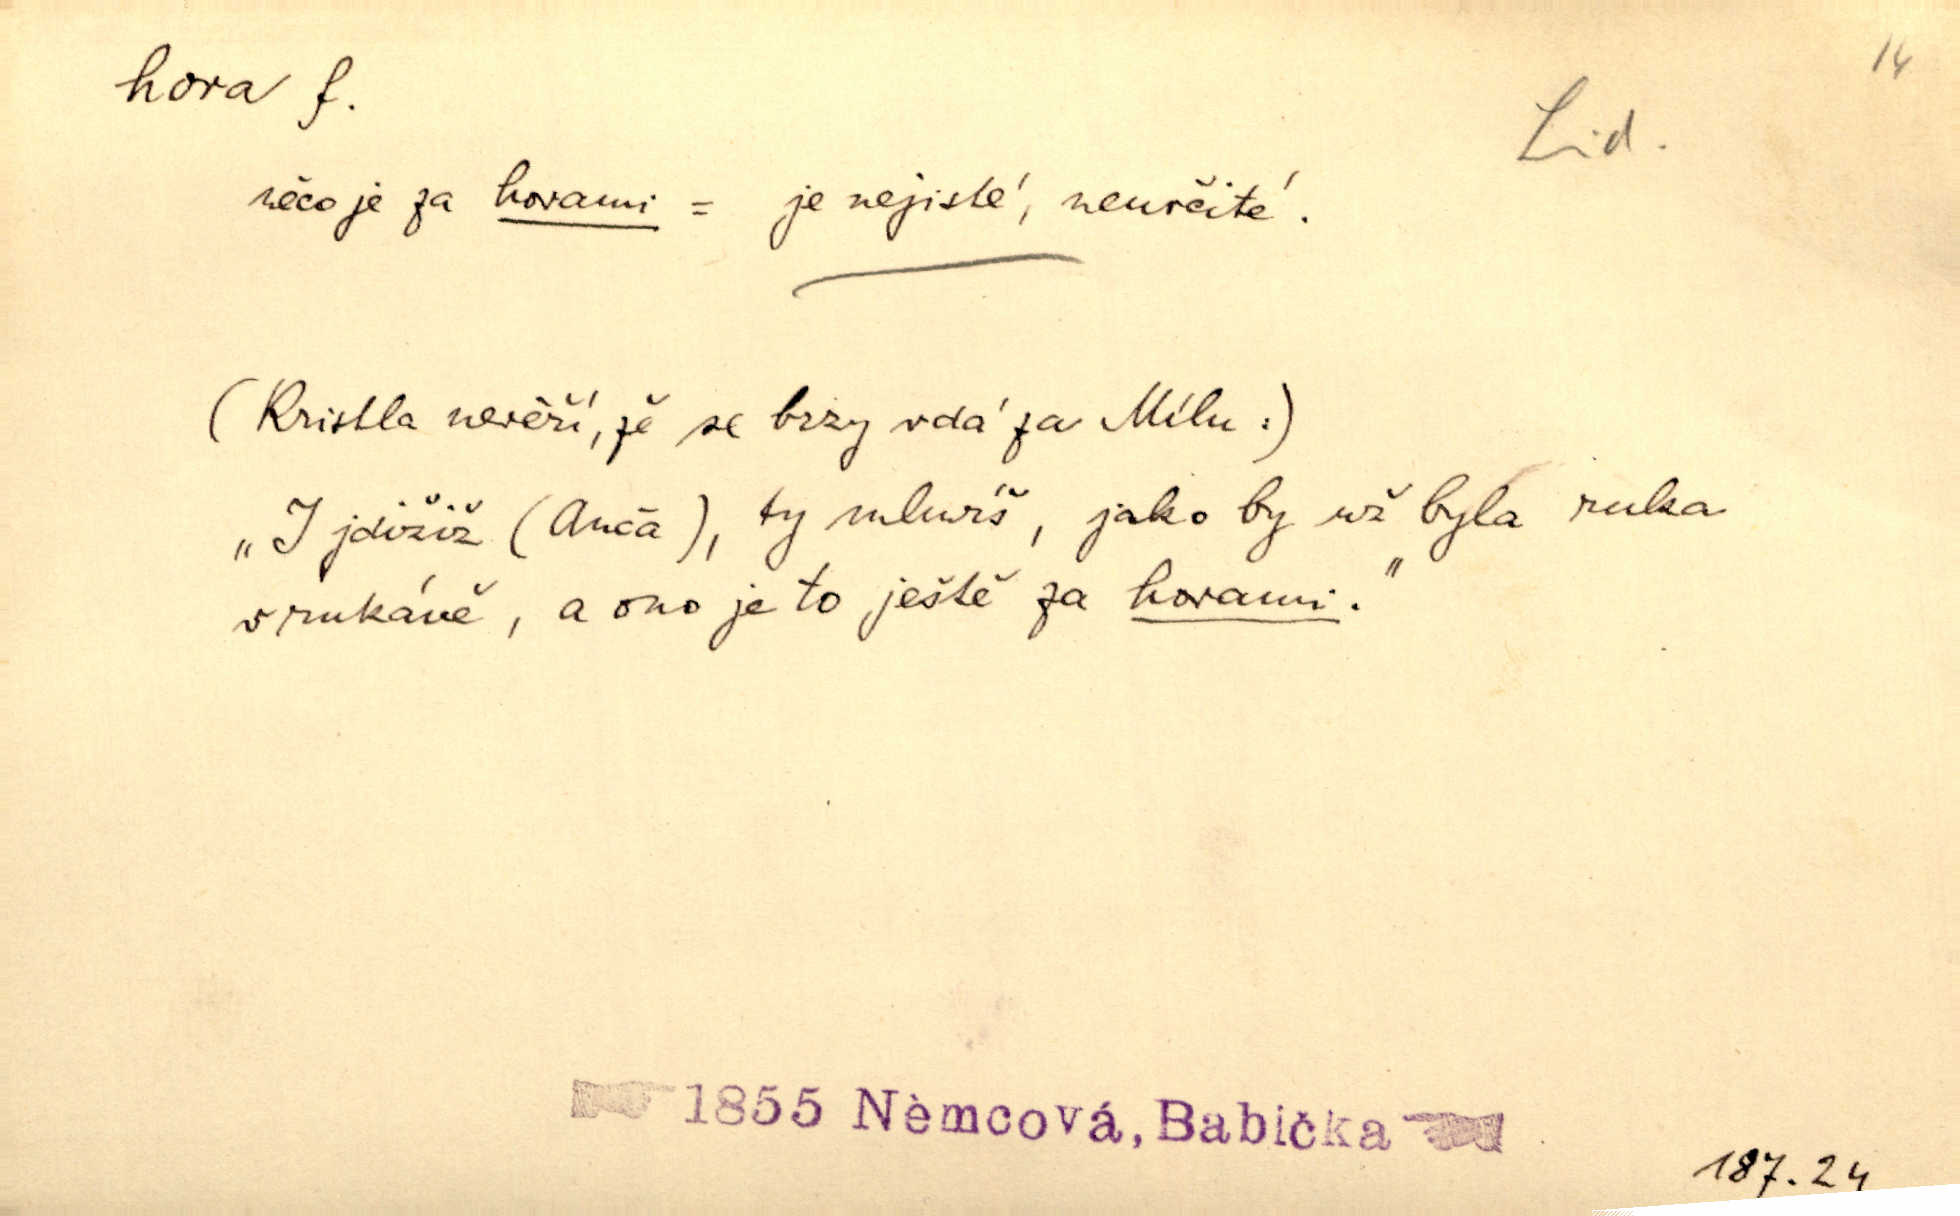 14
hora f.
Lid.
něco je za horami = je nejisté, neurčité.
(Kristla nevěří, že se brzy vdá za Mílu:)
„I jdižiž (Anča), ty mluvíš, jako by už byla ruka
v rukávě, a ono je to ještě za horami."
1855 Němcová, Babička
187.24